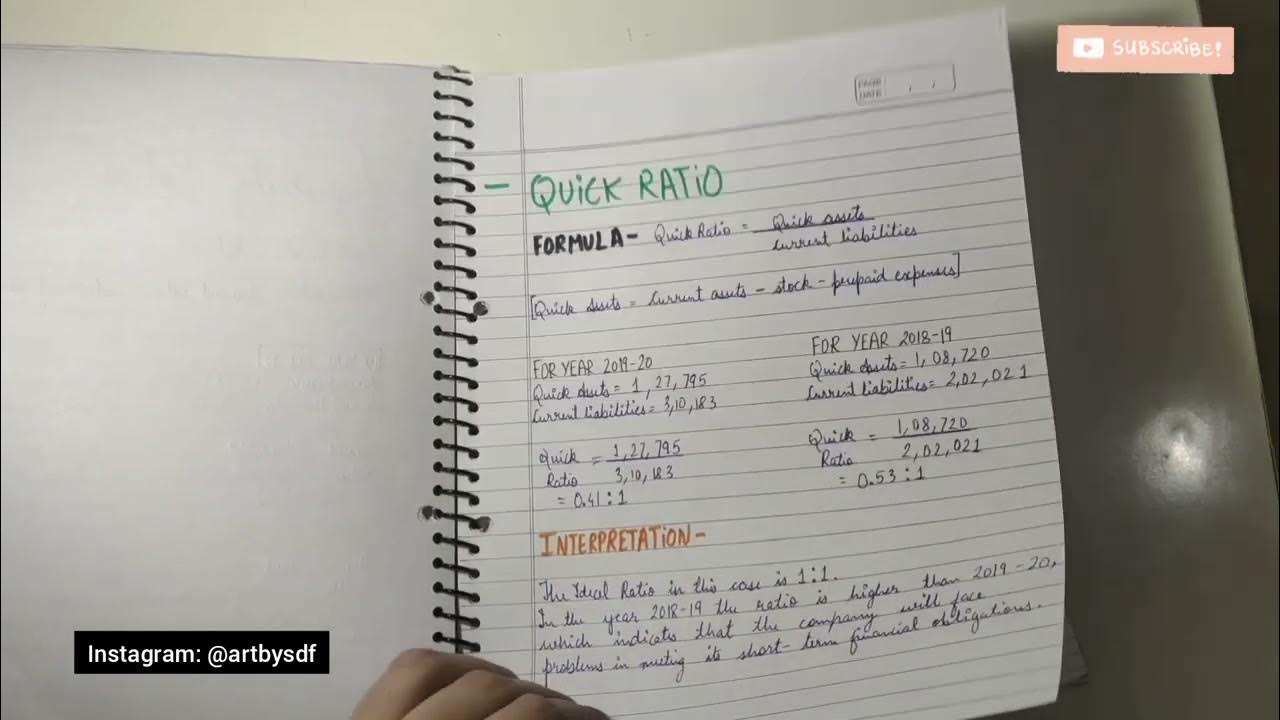 SUBSCRIBE!
PAGE
DATE
- QUICK RATIO
FORMULA- Quick Ratio = Quick assets
current liabilities
[Quick Assets = Current assets - stock - prepaid expenses]
FOR YEAR 2019-20
Quick Assets = 1,27,795
Current liabilities = 3,10,183
Quick Ratio = 1,27,795
3,10,183
= 0.41:1
FOR YEAR 2018-19
Quick Assets = 1,08,720
Current liabilities = 2,02,021
Quick Ratio = 1,08,720
2,02,021
= 0.53:1
INTERPRETATION-
The Ideal Ratio in this case is 1:1.
In the year 2018-19 the ratio is higher than 2019-20,
which indicates that the company will face
problems in meeting its short-term financial obligations.
Instagram: @artbysdf